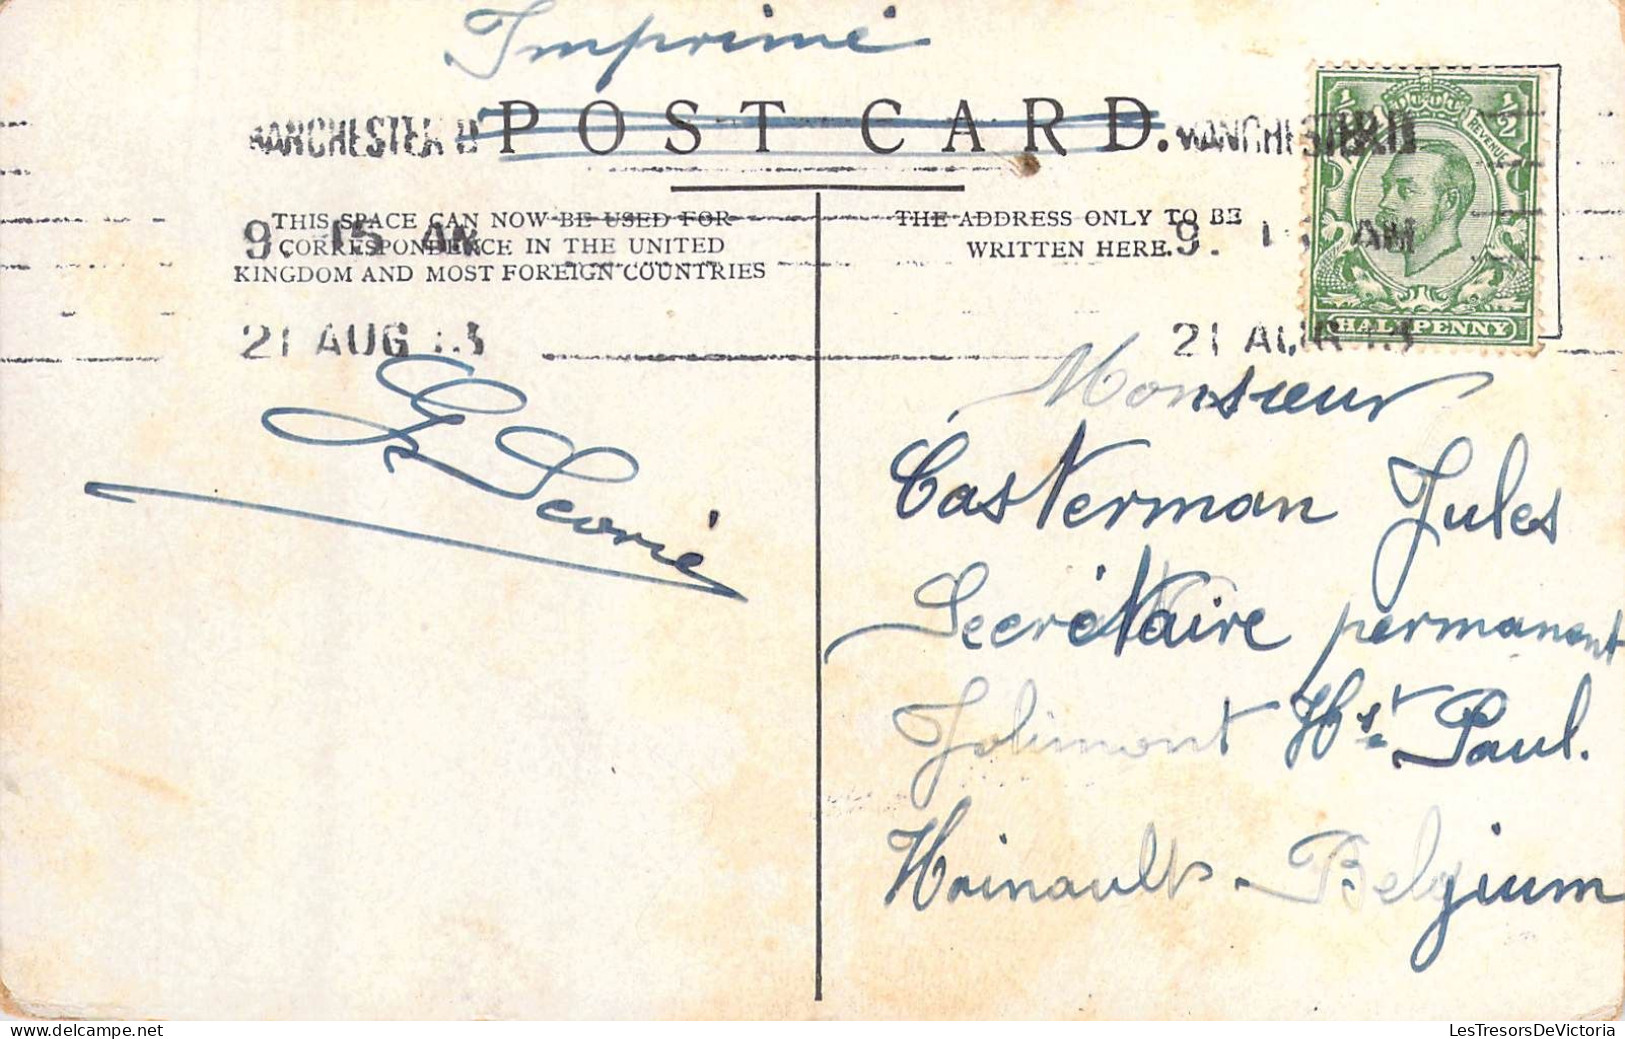 Imprimé
POST CARD.
MANCHESTER
MANCHESTER
THIS SPACE CAN NOW BE USED FOR
CORRESPONDENCE IN THE UNITED
KINGDOM AND MOST FOREIGN COUNTRIES
9. 15 AM
21 AUG 13
THE ADDRESS ONLY TO BE
WRITTEN HERE.
9. 15 AM
21 AUG 13
1/2
1/2
REVENUE
HALFPENNY
Monsieur
Casterman Jules
Secrétaire permanent
Jolimont Hst Paul.
Hainault - Belgium
LesTresorsDeVictoria